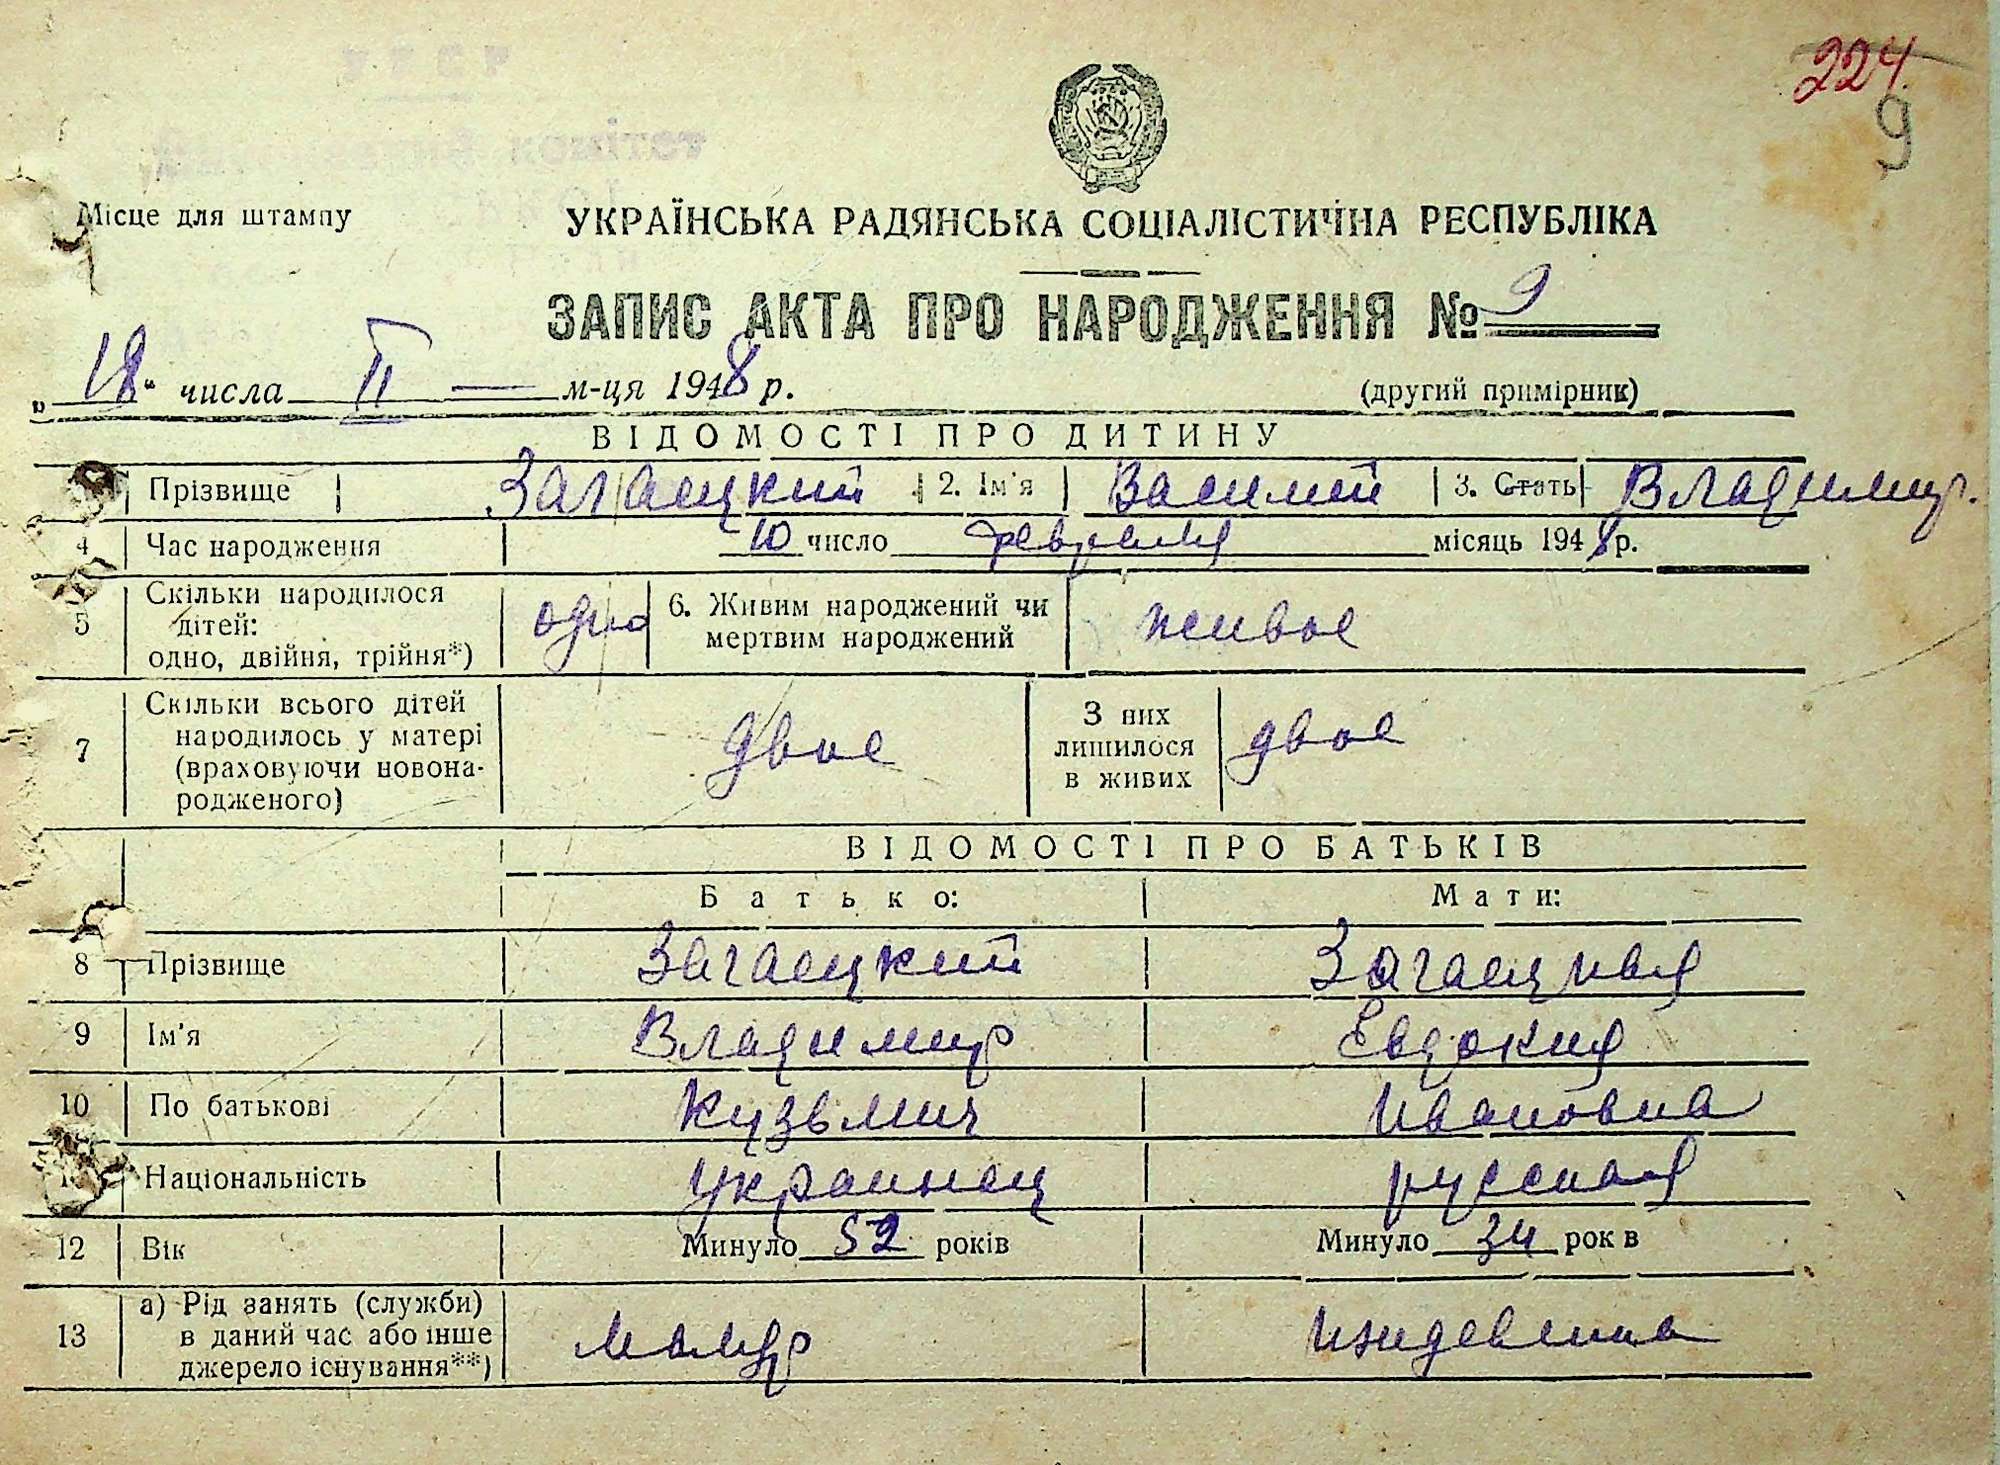 224
9
Місце для штампу
УКРАЇНСЬКА РАДЯНСЬКА СОЦІАЛІСТИЧНА РЕСПУБЛІКА
ЗАПИС АКТА ПРО НАРОДЖЕННЯ № 9
„18“ числа II м-ця 1948 р.
(другий примірник)
ВІДОМОСТІ ПРО ДИТИНУ
Прізвище Загаецкий 2. Ім'я Василий 3. Стать Владимир.
4 Час народження 10 число февраля місяць 1948 р.
5 Скільки народилося дітей: одно, двійня, трійня*) одно 6. Живим народжений чи мертвим народжений живое
7 Скільки всього дітей народилось у матері (враховуючи новонародженого) двое З них лишилося в живих двое
ВІДОМОСТІ ПРО БАТЬКІВ
Батько: Мати:
8 Прізвище Загаецкий Загаецкая
9 Ім'я Владимир Евдокия
10 По батькові Кузьмич Ивановна
Національність украинец русская
12 Вік Минуло 52 років Минуло 34 рок в
13 а) Рід занять (служби) в даний час або інше джерело існування**) маляр иждевенка